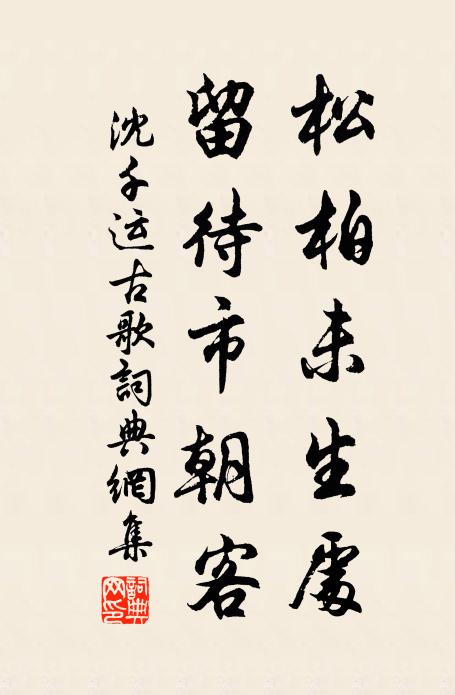 松柏未生處
留待市朝客
沈千运古歌詞典網集
詞典网印